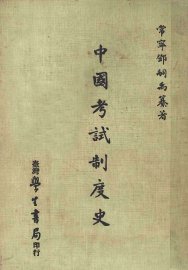 常寧鄧嗣禹纂著
中國考試制度史
臺灣學生書局印行